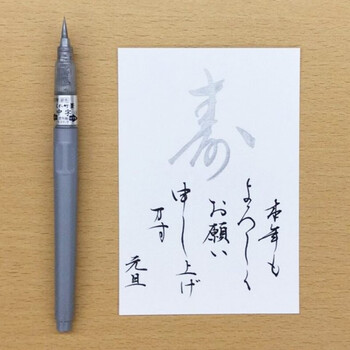 寿
本年も
よろしく
お願い
申し上げ
ます
元旦